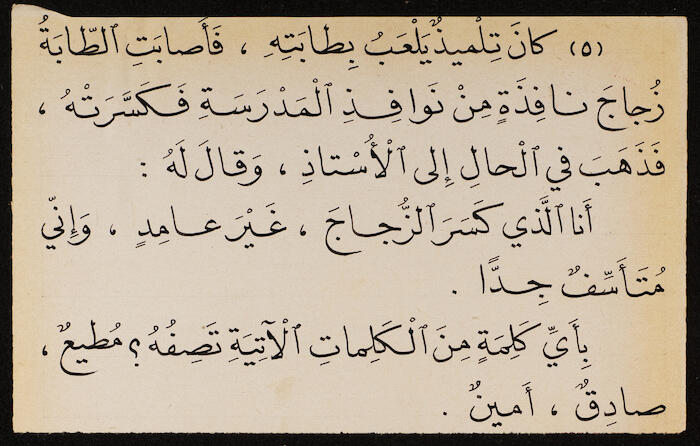 (٥) كانَ تِلْميذٌ يَلْعَبُ بِطابَتِهِ ، فَأَصابَتِ ٱلطّابَةُ
زُجاجَ نافِذَةٍ مِنْ نَوافِذِ ٱلْمَدْرَسَةِ فَكَسَّرَتْهُ ،
فَذَهَبَ في ٱلْحالِ إِلى ٱلْأُسْتاذِ ، وَقالَ لَهُ :
أَنا ٱلَّذي كَسَرَ ٱلزُّجاجَ ، غَيْرَ عامِدٍ ، وَإِنّي
مُتَأَسِّفٌ جِدًّا .
بِأَيِّ كَلِمَةٍ مِنَ ٱلْكَلِماتِ ٱلْآتِيَةِ تَصِفُهُ ؟ مُطيعٌ ،
صادِقٌ ، أَمينٌ .